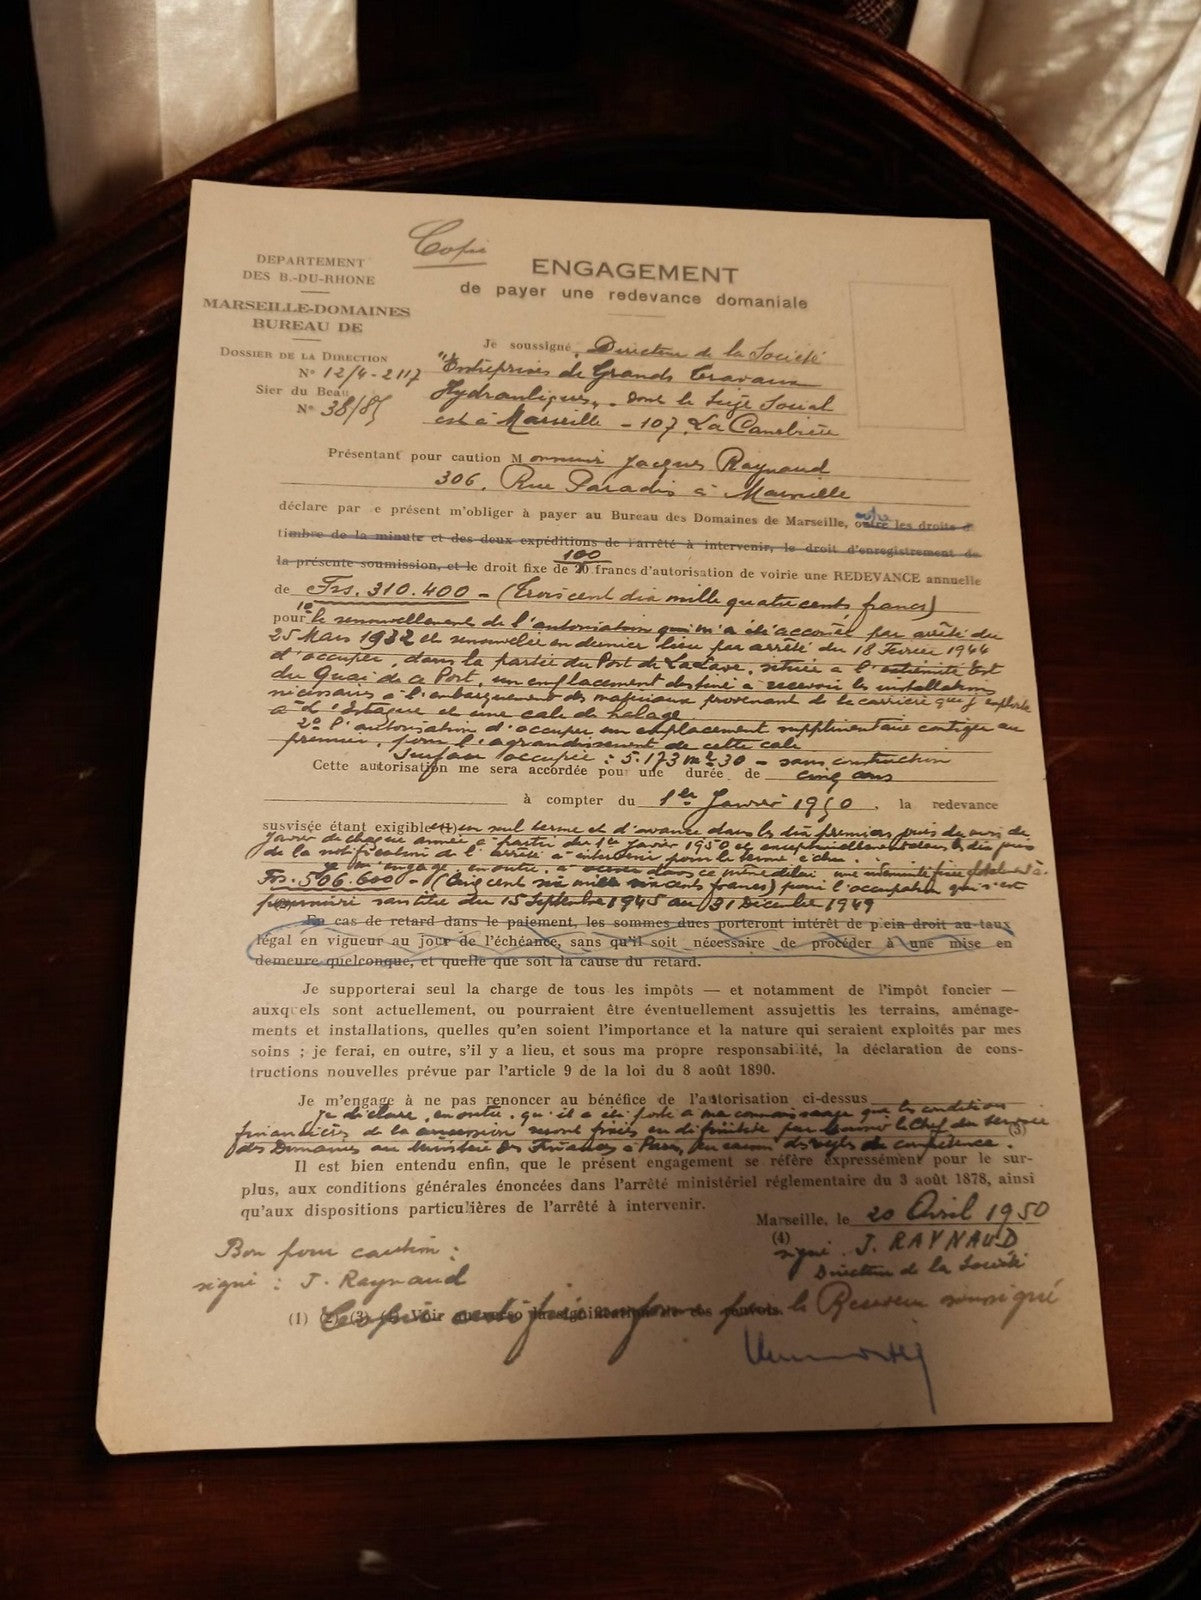 Copie
DEPARTEMENT
DES B.-DU-RHONE
MARSEILLE-DOMAINES
BUREAU DE
DOSSIER DE LA DIRECTION
N° 12/4-2117
Sier du Beau
N° 38/85
ENGAGEMENT
de payer une redevance domaniale
Je soussigné, Directeur de la Société
"Entreprises de Grands Travaux
Hydrauliques", dont le Siège Social
est à Marseille - 107, La Canebière
Présentant pour caution Monsieur Jacques Raynaud
306, Rue Paradis à Marseille
déclare par e présent m'obliger à payer au Bureau des Domaines de Marseille, outre les droits d
timbre de la minute et des deux expéditions de l'arrêté à intervenir, le droit d'enregistrement de
la présente soumission, et le droit fixe de 20 100 francs d'autorisation de voirie une REDEVANCE annuelle
de Frs. 310.400 - (Trois cent dix mille quatre cents francs)
pour 1° le renouvellement de l'autorisation qui m'a été accordée par arrêté du
25 Mars 1932 et renouvelée en dernier lieu par arrêté du 18 Février 1944
d'occuper, dans la partie du Port de La Lave, située à l'extrémité Est
du Quai de ce Port, un emplacement destiné à recevoir les installations
nécessaires à l'embarquement des matériaux provenant de la carrière que j'exploite
à l'Estaque et une cale de halage
2° l'autorisation d'occuper un emplacement supplémentaire contigu au
premier, pour l'agrandissement de cette cale
Surface occupée : 5.173 m² 30 - sans construction
Cette autorisation me sera accordée pour une durée de cinq ans
à compter du 1er Janvier 1950, la redevance
susvisée étant exigible (1) en un seul terme et d'avance dans les dix premiers jours du mois de
Janvier de chaque année à partir du 1er Janvier 1950 et exceptionnellement dans les dix jours
de la notification de l'arrêté à intervenir pour le terme échu.
Je m'engage, en outre, à verser dans ce même délai, une indemnité fixée globalement à
Frs. 506.600 - (Cinq cent six mille six cents francs) pour l'occupation qui s'est
poursuivie sans titre du 15 Septembre 1945 au 31 Décembre 1949
En cas de retard dans le paiement, les sommes dues porteront intérêt de plein droit au taux
légal en vigueur au jour de l'échéance, sans qu'il soit nécessaire de procéder à une mise en
demeure quelconque, et quelle que soit la cause du retard.
Je supporterai seul la charge de tous les impôts — et notamment de l'impôt foncier —
auxquels sont actuellement, ou pourraient être éventuellement assujettis les terrains, aménage-
ments et installations, quelles qu'en soient l'importance et la nature qui seraient exploités par mes
soins ; je ferai, en outre, s'il y a lieu, et sous ma propre responsabilité, la déclaration de cons-
tructions nouvelles prévue par l'article 9 de la loi du 8 août 1890.
Je m'engage à ne pas renoncer au bénéfice de l'autorisation ci-dessus
Je déclare, en outre, qu'il a été porté à ma connaissance que les conditions
financières de la concession seront fixées en définitive par Monsieur le Chef du Service
des Domaines au Ministère des Finances à Paris, en raison des règles de compétence. (3)
Il est bien entendu enfin, que le présent engagement se réfère expressément pour le sur-
plus, aux conditions générales énoncées dans l'arrêté ministériel réglementaire du 3 août 1878, ainsi
qu'aux dispositions particulières de l'arrêté à intervenir.
Marseille, le 20 Avril 1950
(4)
signé : J. RAYNAUD
Directeur de la Société
Bon pour caution :
signé : J. Raynaud
(1) (2) (3) (4) Voir au verso la signification de ces renvois.
Copie certifiée conforme le Receveur soussigné